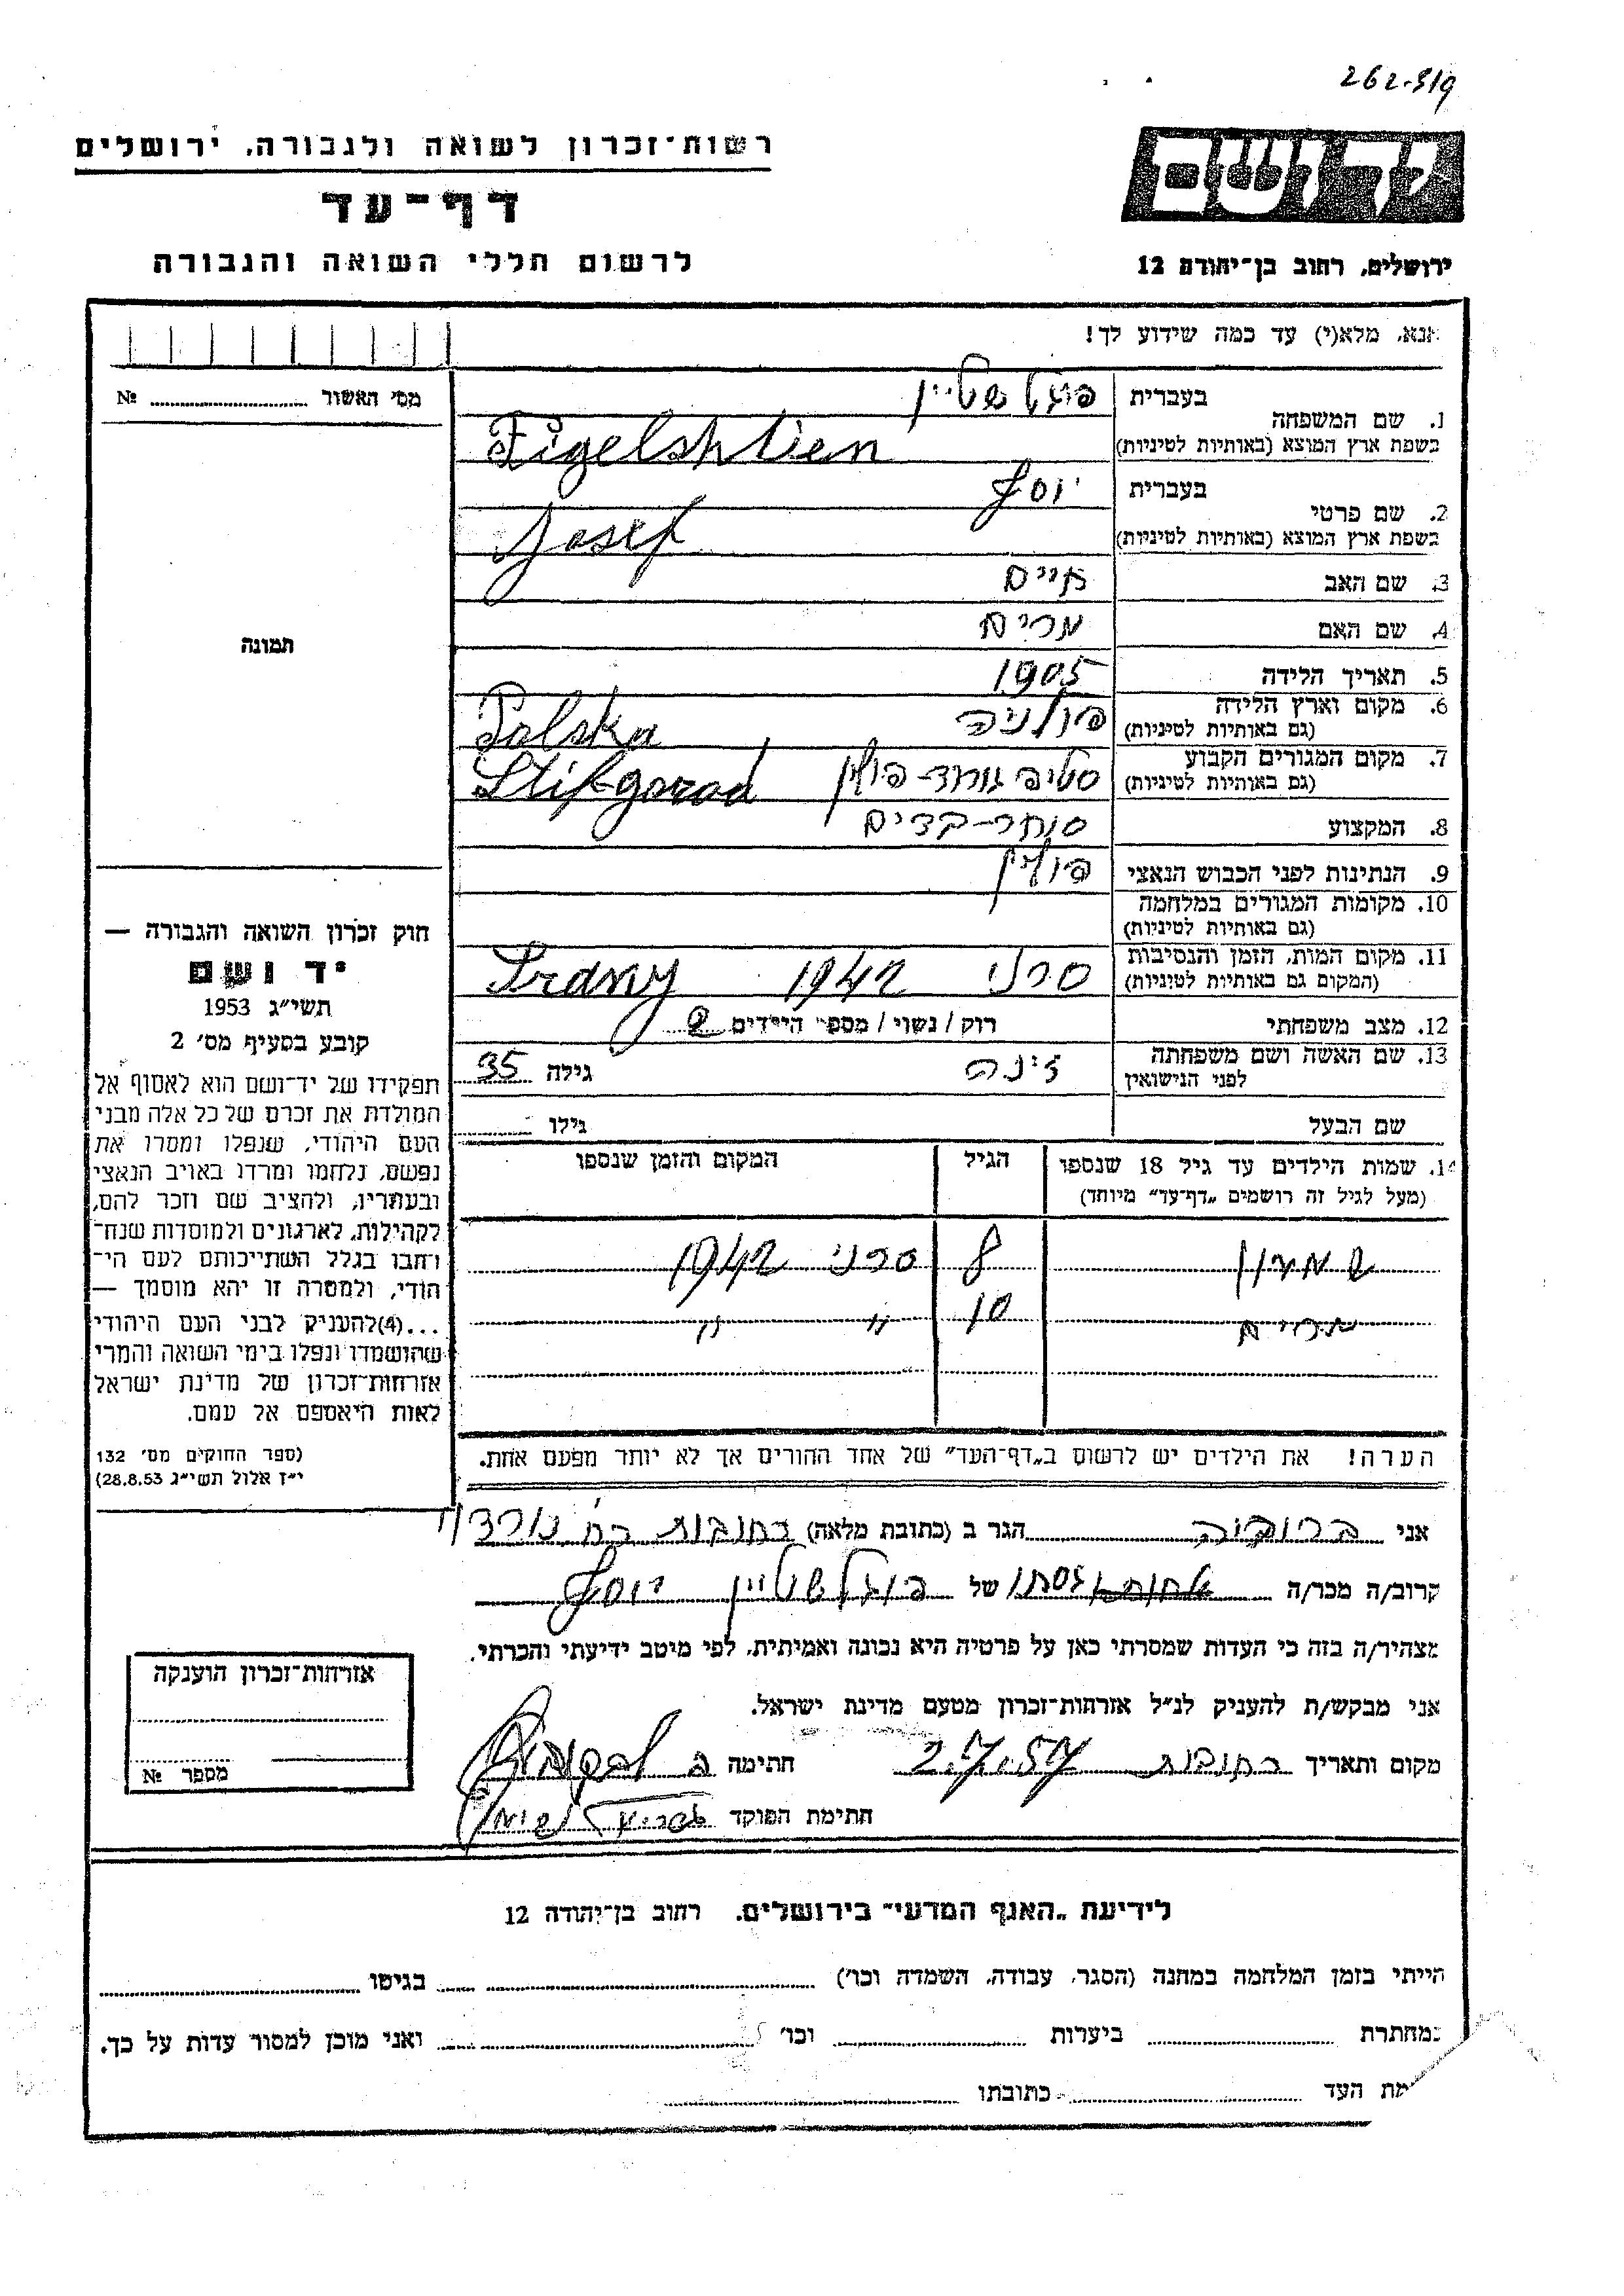 262-319
רשות־זכרון לשואה ולגבורה, ירושלים
יד ושם
דף־עד
לרשום חללי השואה והגבורה
ירושלים, רחוב בן־יהודה 12
אנא, מלא(י) עד כמה שידוע לך!
מס׳ האשור № 
1. שם המשפחה
בעברית פיגלשטיין
בשפת ארץ המוצא (באותיות לטיניות) Figelshtien
2. שם פרטי
בעברית יוסף
בשפת ארץ המוצא (באותיות לטיניות) Josef
3. שם האב חיים
4. שם האם מרים
תמונה
5. תאריך הלידה 1905
6. מקום וארץ הלידה פולניה Polska
(גם באותיות לטיניות)
7. מקום המגורים הקבוע סטיפגורוד-פולין Stifgorod
(גם באותיות לטיניות)
8. המקצוע סוחר-בדים
9. הנתינות לפני הכבוש הנאצי פולין
10. מקומות המגורים במלחמה
(גם באותיות לטיניות)
11. מקום המות, הזמן והנסיבות סרני 1942
(המקום גם באותיות לטיניות)
12. מצב משפחתי רוק / נשוי / מספר הילדים 2
13. שם האשה ושם משפחתה זינה גילה 35
לפני הנישואין
שם הבעל גילו
14. שמות הילדים עד גיל 18 שנספו הגיל המקום והזמן שנספו
(מעל לגיל זה רושמים „דף־עד״ מיוחד)
שמעון 8 סרני 1942
מרים 10 " "
הערה! את הילדים יש לרשום ב„דף־העד״ של אחד ההורים אך לא יותר מפעם אחת.
חוק זכרון השואה והגבורה —
יד ושם
תשי״ג 1953
קובע בסעיף מס׳ 2
תפקידו של יד־ושם הוא לאסוף אל
המולדת את זכרם של כל אלה מבני
העם היהודי, שנפלו ומסרו את
נפשם, נלחמו ומרדו באויב הנאצי
ובעוזריו, ולהציב שם וזכר להם,
לקהילות, לארגונים ולמוסדות שנח־
רבו בגלל השתייכותם לעם הי־
הודי, ולמטרה זו יהא מוסמך —
...(4)להעניק לבני העם היהודי
שהושמדו ונפלו בימי השואה והמרי
אזרחות־זכרון של מדינת ישראל
לאות היאספם אל עמם.
(ספר החוקים מס׳ 132
י״ז אלול תשי״ג 28.8.53)
אני ברוניה הגר ב (כתובת מלאה) רחובות רח׳
קרוב/ה מכר/ה גיסתו של פיגלשטיין יוסף
מצהיר/ה בזה כי העדות שמסרתי כאן על פרטיה היא נכונה ואמיתית, לפי מיטב ידיעתי והכרתי.
אני מבקש/ת להעניק לנ״ל אזרחות־זכרון מטעם מדינת ישראל.
מקום ותאריך רחובות 2.7.57 חתימה
חתימת הפוקד
אזרחות־זכרון הוענקה
מספר №
לידיעת „האגף המדעי״ בירושלים, רחוב בן־יהודה 12
הייתי בזמן המלחמה במחנה (הסגר, עבודה, השמדה וכו׳) בגיטו
במחתרת ביערות וכו׳ ואני מוכן למסור עדות על כך.
מת העד כתובתו